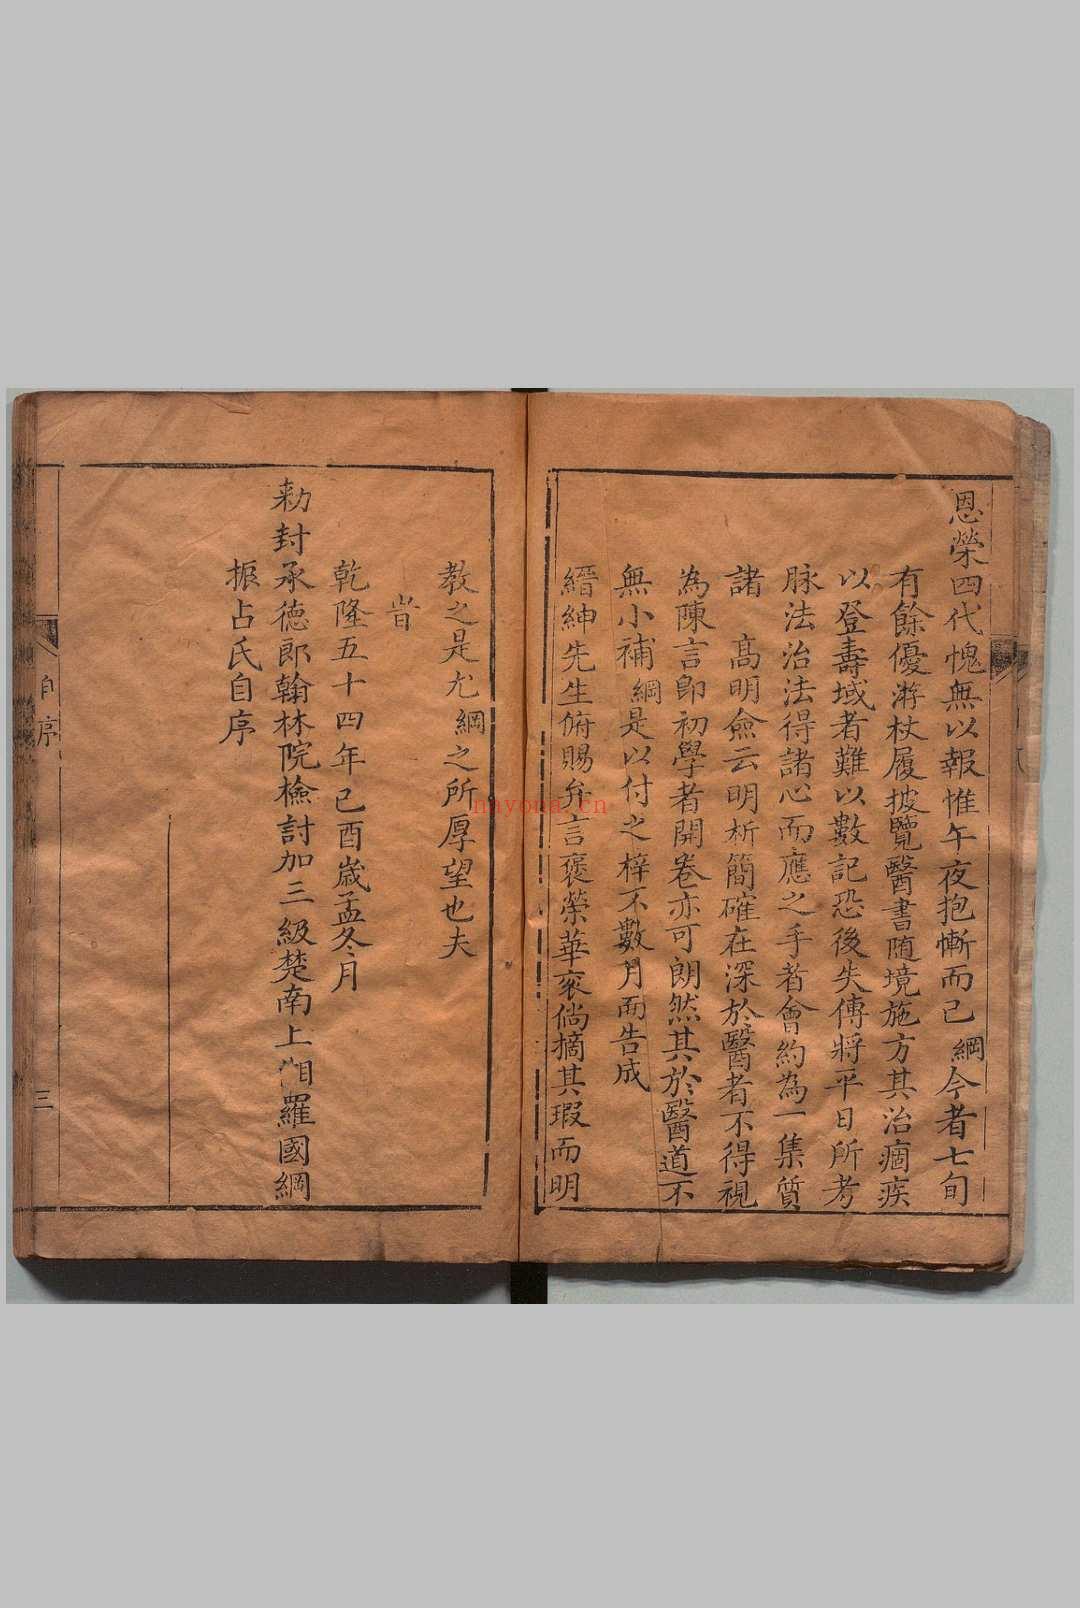 恩榮四代愧無以報惟午夜抱慚而已綱今者七旬
有餘優游杖履披覽醫書随境施方其治痼疾
以登壽域者難以數記恐後失傳將平日所考
脉法治法得諸心而應之手者會約為一集質
諸　高明僉云明析簡確在深於醫者不得視
為陳言卽初學者開卷亦可朗然其於醫道不
無小補綱是以付之梓不數月而告成
縉紳先生俯賜弁言褒榮華衮倘摘其瑕而明
教之是尤綱之所厚望也夫
旹
乾隆五十四年己酉歲孟冬月
勅封承德郎翰林院檢討加三級楚南上湘羅國綱
振占氏自序
自序
三
nayona.cn